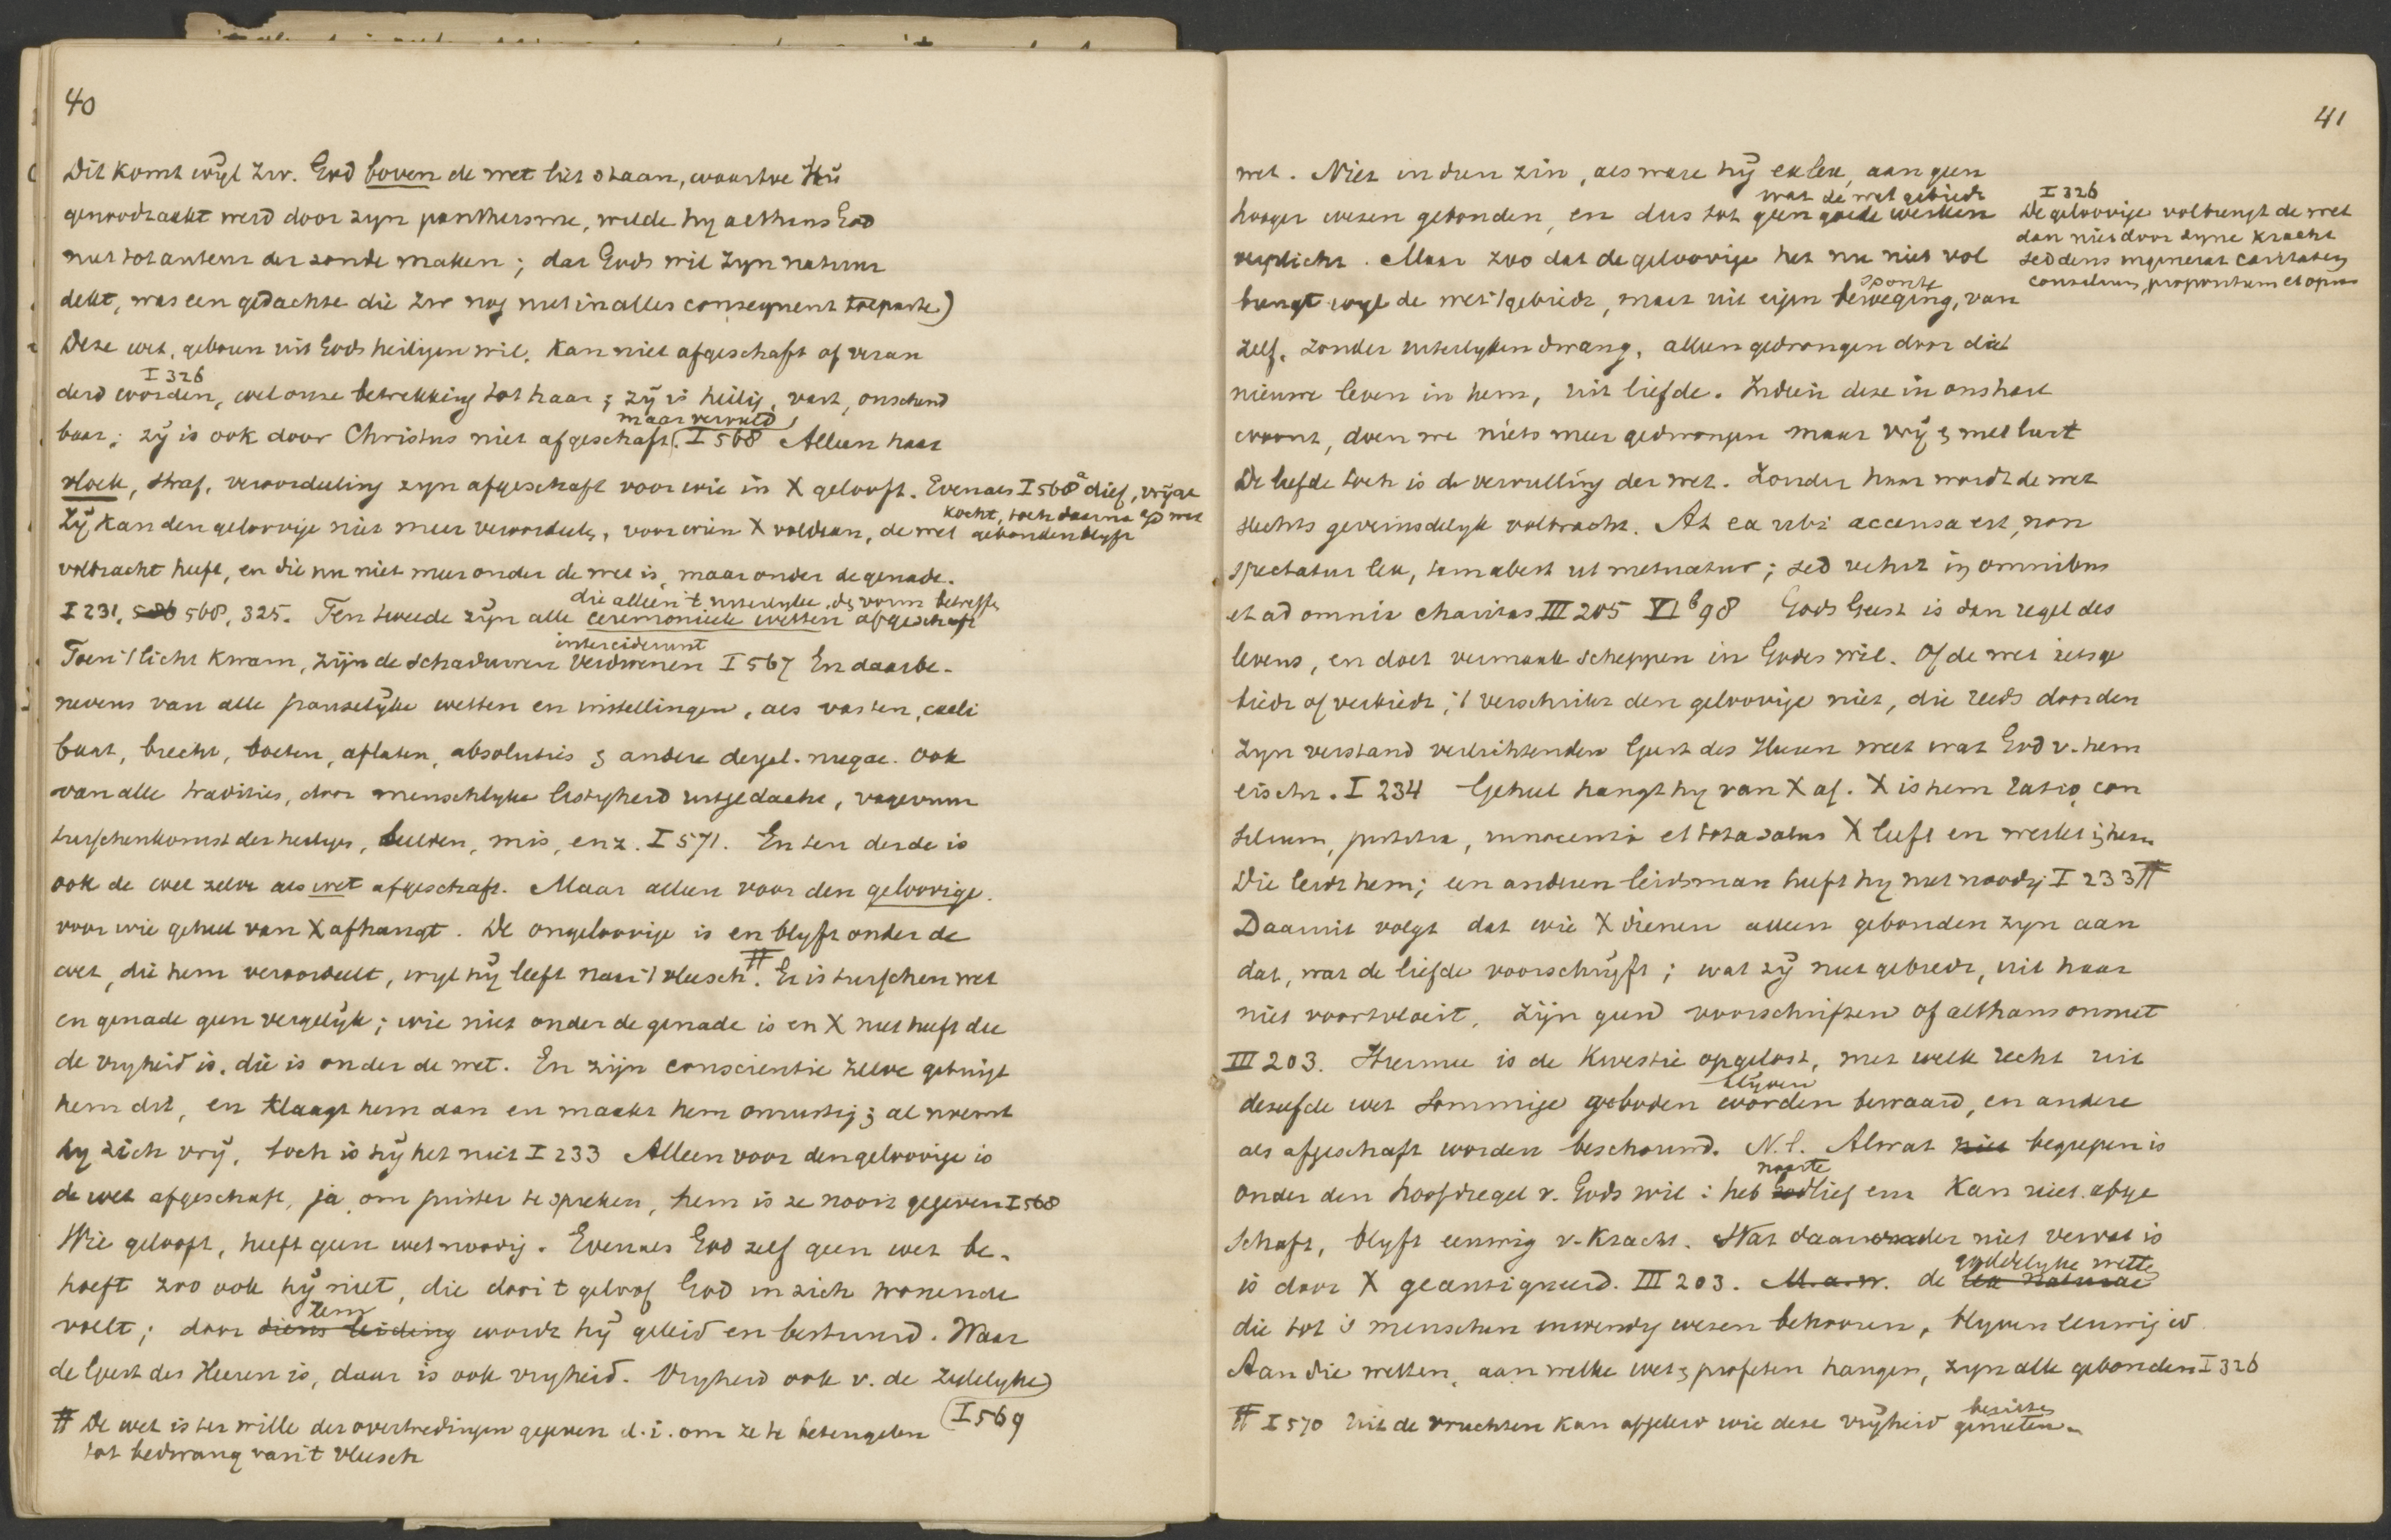 40
Dit komt wijl Zw. God boven de wet liet staan, waartoe Hij
genoodzaakt werd door zyn pantheisme, wilde hy althans God
niet tot auteur der zonde maken; dat Gods wil zyn natuur
dekt, was een gedachte die Zw nog niet in alles consequent toepaste)
Deze wet, geboren uit Gods heiligen wil, kan niet afgeschaft of veran
I 326
derd worden, wel onze betrekking tot haar; zij is heilig, vast, onschend
maar vervuld
baar; zij is ook door Christus niet afgeschaft. I 568 Alleen haar
vloek, straf, veroordeeling zyn afgeschaft voor wie in X gelooft. Evenals I 568a dief, vrijge
kocht, toch daarna a/d wet
Zij kan den geloovige niet meer veroordeelen, voor wien X voldaan, de wet gebonden blyft
volbracht heeft, en die nu niet meer onder de wet is, maar onder de genade.
die alleen 't uiterlyke, de vorm betreffen
I 231, 568, 325. Ten tweede zijn alle ceremonieele wetten afgeschaft
interciderunt
Toen 't licht kwam, zijn de schaduwen verdwenen I 567 En daarbe-
nevens van alle pauselijke wetten en instellingen, als vasten, caeli
baat, biecht, boeten, aflaten, absoluties & andere dergel. nugae. Ook
van alle tradities, door menschlyke listigheid uitgedacht, vagevuur
tusschenkomst der heiligen, beelden, mis, enz. I 571. En ten derde is
ook de wet zelve als wet afgeschaft. Maar alleen voor den geloovige.
voor wie geheel van X afhangt. De ongeloovige is en blyft onder de
wet, die hem veroordeelt, wyl hij leeft naar 't vleesch #. Er is tusschen wet
en genade geen vergelijk; wie niet onder de genade is en X niet heeft die
de vryheid is, die is onder de wet. En zijn conscientie zelve getuigt
hem dit, en klaagt hem aan en maakt hem onrustig; al noemt
hy zich vrij, toch is hij het niet I 233 Alleen voor den geloovige is
de wet afgeschaft, ja, om juister te spreken, hem is ze nooit gegeven I 568
Wie gelooft, heeft geen wet noodig. Evenals God zelf geen wet be-
hoeft zoo ook hij niet, die door 't geloof God in zich wonende
Hem
voelt; door diens leiding wordt hij geleid en bestuurd. Waar
de Geest des Heeren is, daar is ook vryheid. Vryheid ook v. de zedelyke)
(I 569
# De wet is ter wille der overtredingen gegeven d.i. om ze te beteugelen
tot bedwang van 't vleesch
41
wet. Niet in dien zin, als ware hij exlex, aan geen
wat de wet gebiedt
hooger wezen gebonden, en dus tot geen goede werken
verplicht. Maar zoo dat de geloovige het nu niet vol
sponte
brengt wyl de wet 't gebiedt, maar uit eigen beweging, van
I 326
De geloovige volbrengt de wet
dan niet door zyne kracht
sed deus ingenerat caritatem
consilium, propositum et opus
zelf, zonder uiterlyken dwang, alleen gedrongen door dat
nieuwe leven in hem, uit liefde. Indien deze in ons hart
woont, doen we niets meer gedwongen maar vrij & met lust
De liefde toch is de vervulling der wet. Zonder haar wordt de wet
slechts geveinsdelyk volbracht. At ea ubi accensa est, non
spectatur lex, tam abest ut metuatur; sed vehit in omnibus
et ad omnia charitas III 205 VIb 98 Gods Geest is dan regel des
levens, en doet vermaak scheppen in Godes wil. Of de wet iets ge
biedt of verbiedt, 't verschrikt den geloovige niet, die reeds door den
zyn verstand verlichtenden Geest des Heeren weet wat God v. hem
eischt. I 234 Geheel hangt hy van X af. X is hem ratio, con
silium, justitia, innocentia et tota salus X leeft en werkt in hem
Die leidt hem; een anderen leidsman heeft hy niet noodig I 233 #
Daaruit volgt dat wie X dienen alleen gebonden zyn aan
dat, wat de liefde voorschrijft; wat zij niet gebiedt, uit haar
niet voortvloeit, zijn geen voorschriften of althans onnut
III 203. Hiermee is de kwestie opgelost, met welk recht uit
blijven
dezelfde wet sommige geboden worden bewaard, en andere
als afgeschaft worden beschouwd. N.l. Alwat niet begrepen is
naaste
onder den hoofdregel v. Gods wil: heb God lief enz kan niet afge
schaft, blyft eeuwig v. kracht. Wat daaronder niet vervat is
goddelyke wetten
is door X geantiqueerd. III 203. M.a.w. de lex naturae
die tot 's menschen inwendig wezen behooren, blyven eeuwig
Aan die wetten, aan welke wet & profeten hangen, zyn alle gebonden I 326
bezitten
# I 570 Uit de vruchten kan afgeleid wie deze vrijheid genieten.